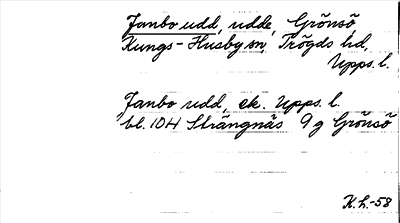 Janbo udd, udde, Grönsö,
Kungs-Husby sn, Trögds hd,
Upps. l.
Janbo udd, ek. Upps. l.
bl. 104 Strängnäs 9 g Grönsö
K.L.-58